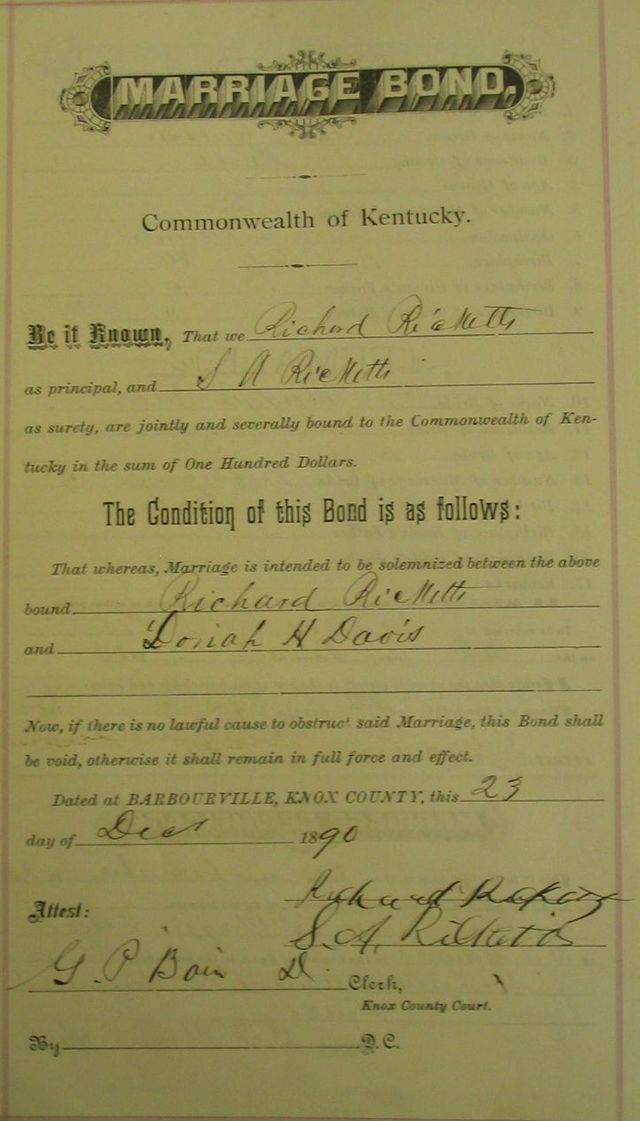 MARRIAGE BOND.
Commonwealth of Kentucky.
Be it Known, That we Richard Ricketts
as principal, and S A Ricketts
as surety, are jointly and severally bound to the Commonwealth of Ken-
tucky in the sum of One Hundred Dollars.
The Condition of this Bond is as follows:
That whereas, Marriage is intended to be solemnized between the above
bound Richard Ricketts
and H Davis
Now, if there is no lawful cause to obstruct said Marriage, this Bond shall
be void, otherwise it shall remain in full force and effect.
Dated at BARBOURVILLE, KNOX COUNTY, this 23
day of Dec 1890
Richard
Attest: S. A. Ricketts
G. P Bain D. Clerk,
Knox County Court.
By D.C.